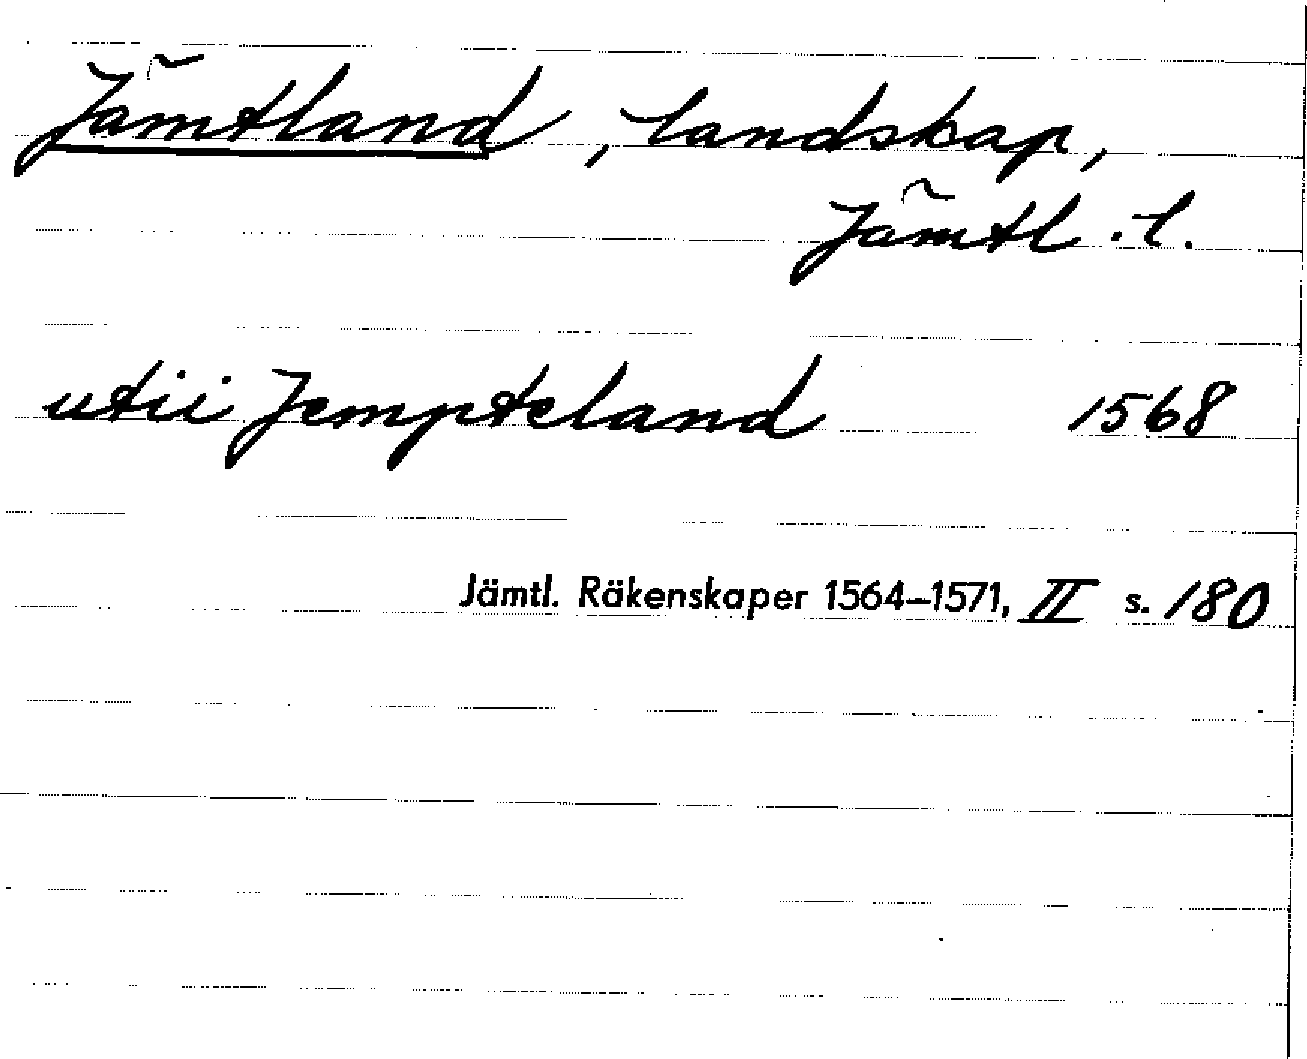 Jämtland, landskap,
Jämtl. l.
utii Jempteland 1568
Jämtl. Räkenskaper 1564–1571, II s. 180